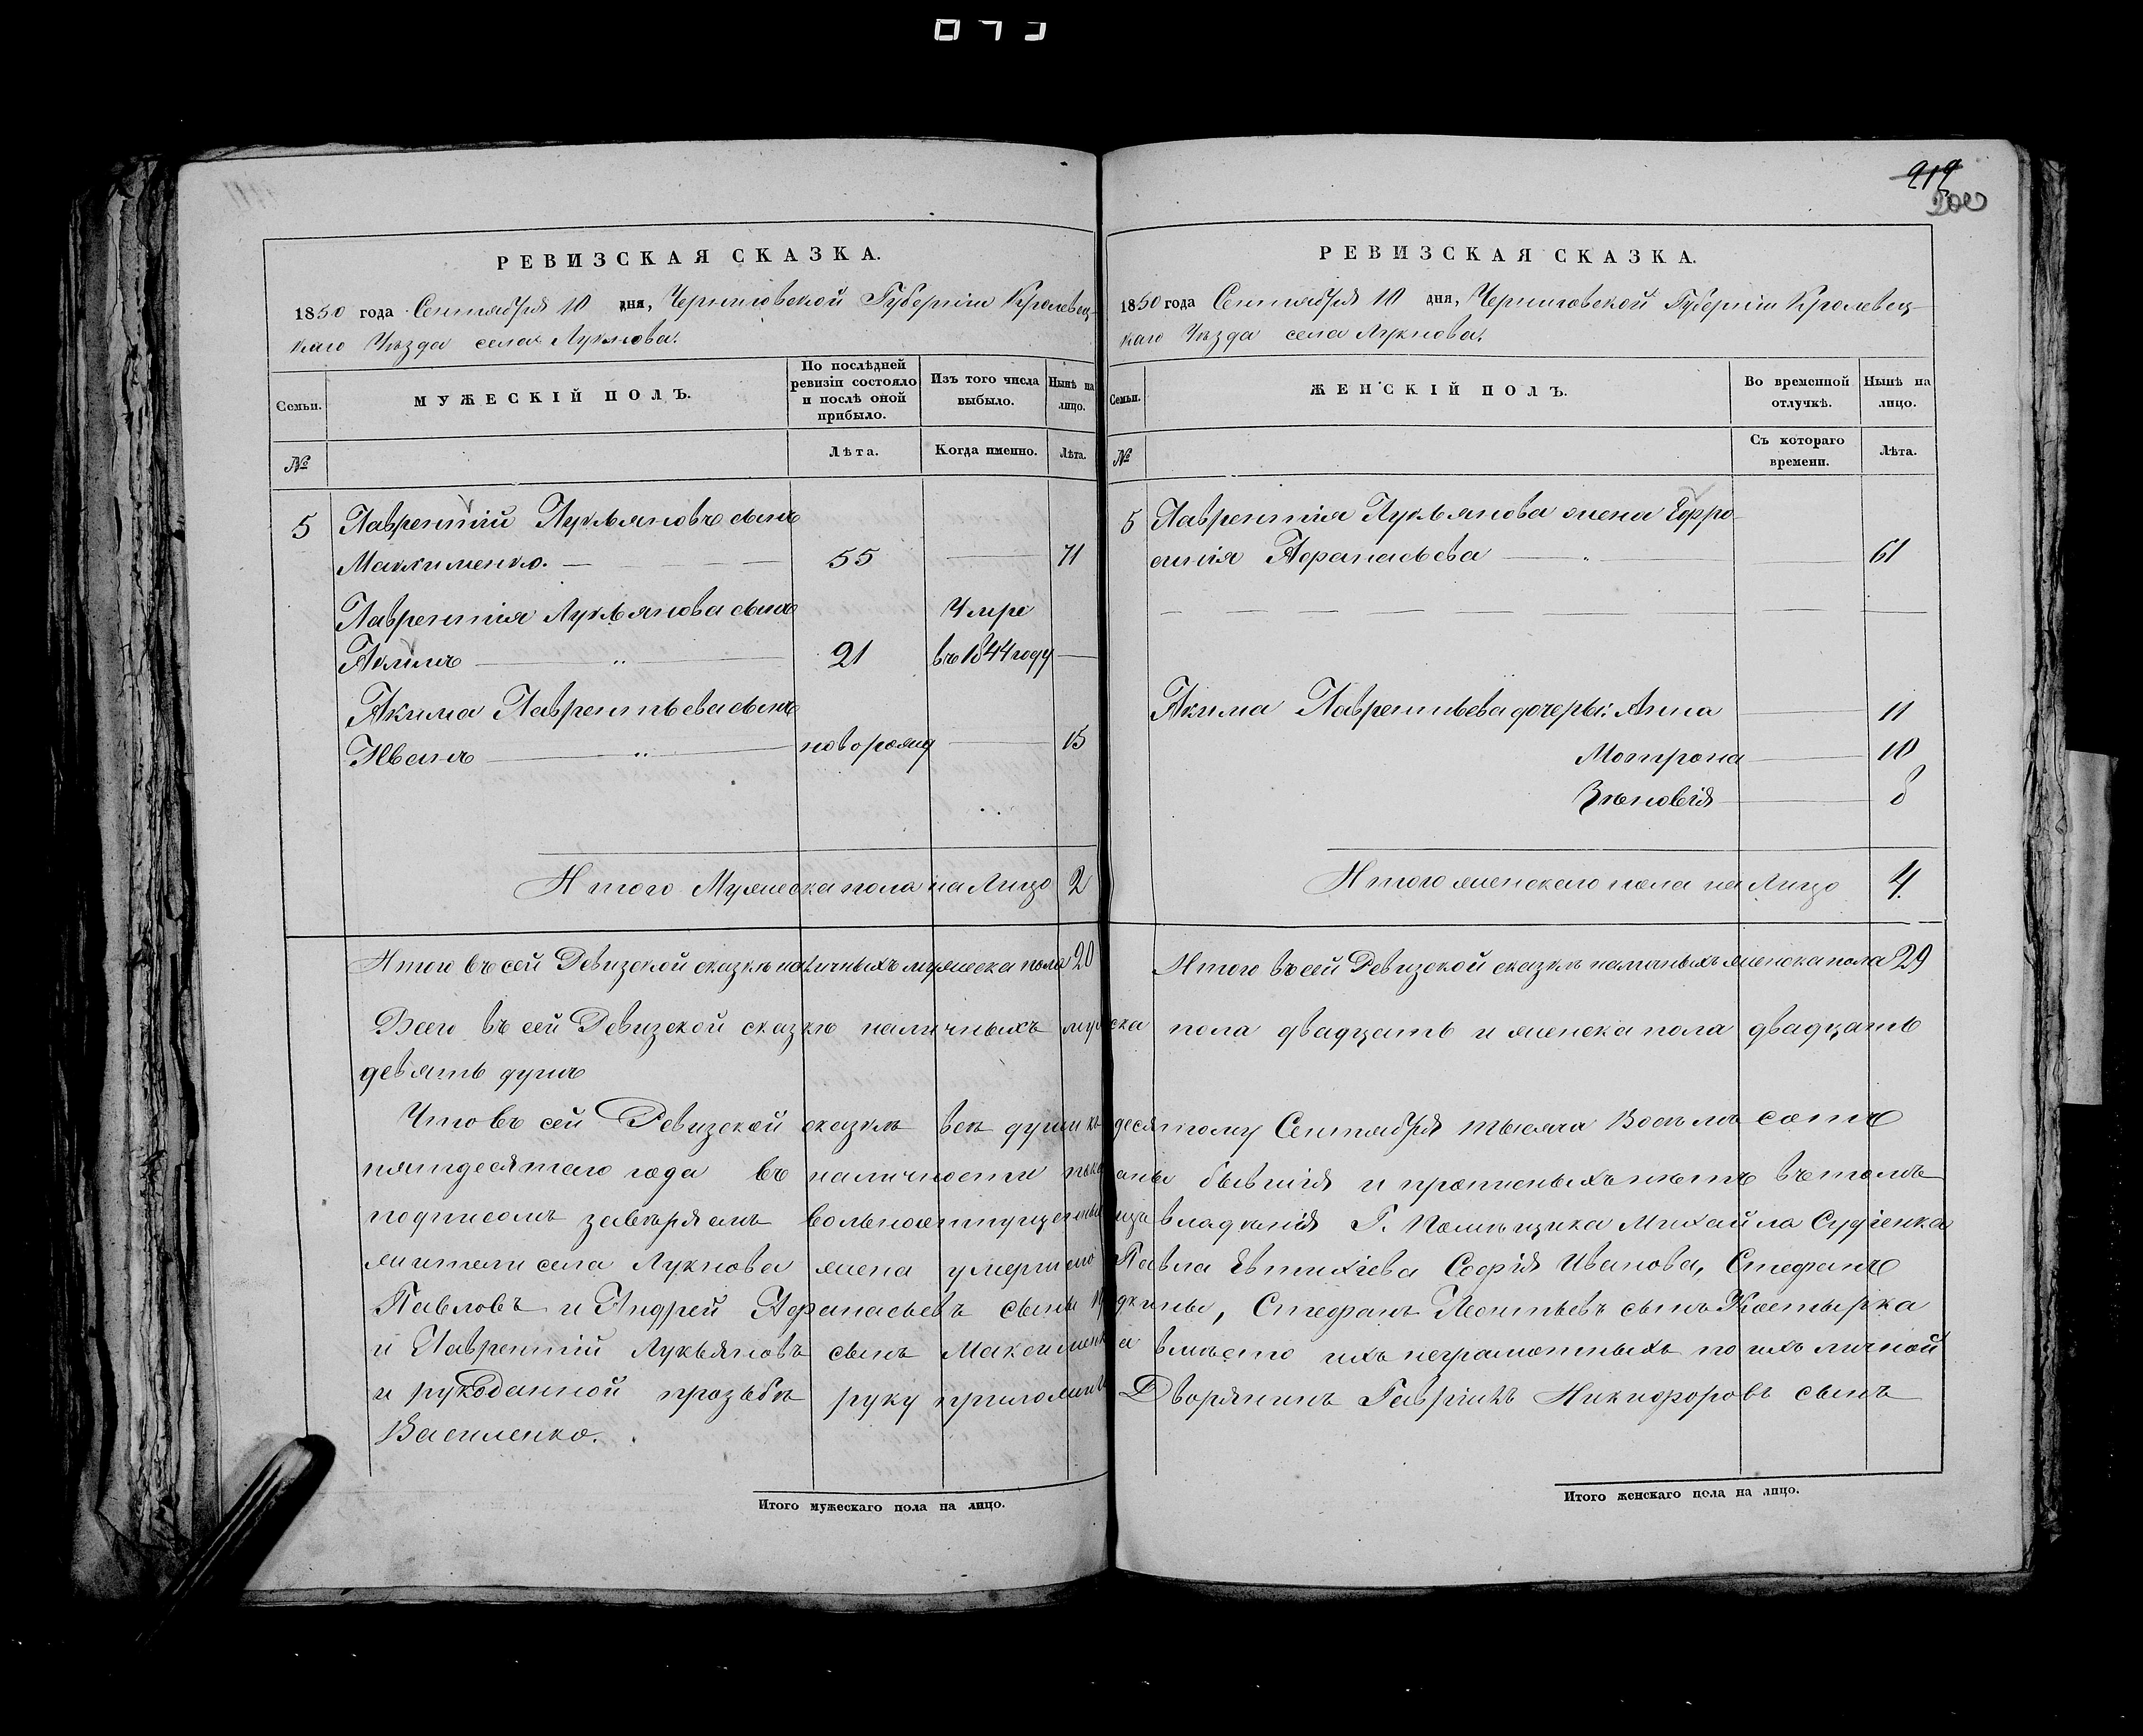 919
РЕВИЗСКАЯ СКАЗКА.
1850 года Сентября 10 дня, Черниговской Губернiи Кролевец-
каго Уѣзда села Лукнова.
Семьи.
МУЖЕСКIЙ ПОЛЪ.
По послѣдней ревизiи состояло и послѣ оной прибыло.
Изъ того числа выбыло.
Нынѣ на лицо.
№
Лѣта.
Когда именно.
Лѣта.
5 Лаврентiй Лукьяновъ сынъ
Максименко. — 55 — 71
Лаврентiя Лукьянова сынъ Умре
Акимъ — „ — 21 въ 1844 году —
Акима Лаврентьева сынъ
Иванъ — „ — новорожд — 15
Итого Мужеска пола на Лицо 2
Итого въ сей Ревизской сказкѣ наличныхъ мужеска пола 20
РЕВИЗСКАЯ СКАЗКА.
1850 года Сентября 10 дня, Черниговской Губернiи Кролевец-
каго Уѣзда села Лукнова.
Семьи.
ЖЕНСКIЙ ПОЛЪ.
Во временной отлучкѣ.
Нынѣ на лицо.
№
Съ котораго времени.
Лѣта.
5 Лаврентiя Лукьянова жена Ефро-
синiя Афанасьева — — 61
Акима Лаврентьева дочери: Анна — 11
Мотрона — 10
Зѣновiя — 8
Итого женскаго пола на Лицо 4.
Итого въ сей Ревизской сказкѣ наличныхъ женска пола 29
Всего въ сей Ревизской сказкѣ наличныхъ муска пола двадцать и женска пола двадцать
девять душъ
Что въ сей Ревизской сказкѣ всѣ души къ десятому Сентября тысяча восемь сотъ
пятдесятаго года въ наличности бывшiя и прописныхъ нѣтъ въ томъ
подписомъ завѣряемъ вольноотпущенные изъ владѣнiя Г. Помѣщика Михайла Судiенка
жители села Лукнова жена умершего Павла Евтихiева Софiя Иванова, Стефанъ
Павловъ и Андрей Афанасьевъ сыны Стефанъ Леонтьевъ сынъ Костырка
и Лаврентiй Лукьяновъ сынъ Максименка вмѣсто ихъ неграмотныхъ по ихъ личной
и рукоданной прозьбѣ руку приложилъ Дворянинъ Гаврiилъ Никифоровъ сынъ
Василенко.
Итого мужескаго пола на лицо.
Итого женскаго пола на лицо.